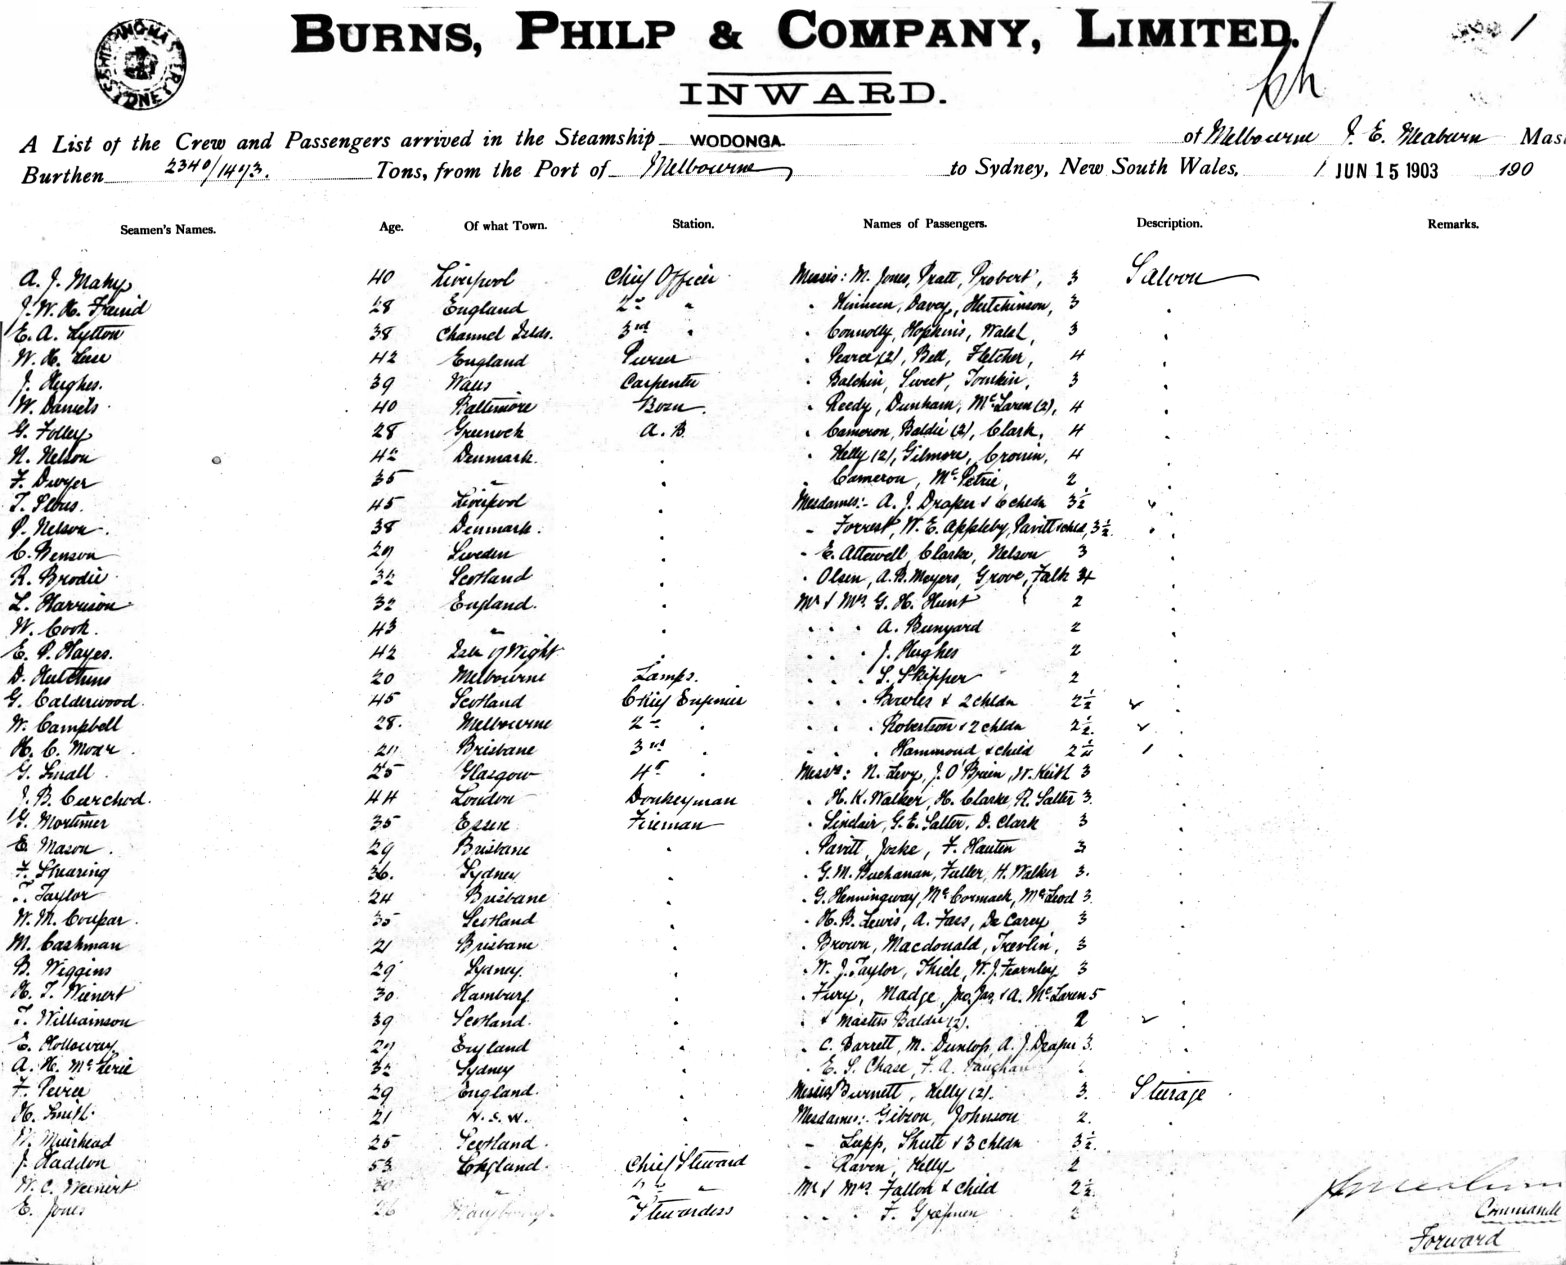 SHIPPING MASTER SYDNEY
BURNS, PHILP & COMPANY, LIMITED.
1
INWARD.
A List of the Crew and Passengers arrived in the Steamship WODONGA. of Melbourne J. E. Meaburn Mas
Burthen 2340/1473. Tons, from the Port of Melbourne to Sydney, New South Wales, JUN 15 1903 190
Seamen's Names. Age. Of what Town. Station. Names of Passengers. Description. Remarks.
A. J. Mahy 40 Liverpool Chief Officer Messrs: M. Jones, Pratt, Probert, 3 Saloon
J. W. H. 28 England 2nd " " Kinnen, Davey, Hutchinson, 3
E. A. Lytton 38 Channel Islds. 3rd " " Connolly, Hopkins, Walsh, 3
W. H. 42 England Purser " Pearce (2), Bell, Fletcher, 4
J. Hughes. 39 Wales Carpenter " Balchin, Sweet, Tomkin, 3
W. Daniels 40 Baltimore Bosn. " Reedy, Dunham, McLaren (2), 4
G. Folley 28 Greenock A. B. " Cameron, Baldie (2), Clark, 4
N. Nelson 42 Denmark. " " Kelly (2), Gilmore, Cronin, 4
F. Dwyer 35 " " " Cameron, McPetrie, 2
T. 45 Liverpool " Mesdames:- A. J. Draper & 6 chldn 3½
P. Nelson 38 Denmark. " " Forrest, W. E. Appleby, Pavitt & chld, 3½
C. Benson 29 Sweden " " E. Attewell, Clarke, Nelson 3
R. Brodie 32 Scotland " " Olsen, A. B. Meyers, Grove, Falk 4
L. Harrison 32 England. " Mr & Mrs G. H. Hunt 2
W. Cook. 43 " " " " " A. Bunyard 2
E. P. Hayes. 42 Isle of Wight " " " " J. Hughes 2
D. Hutchins 20 Melbourne Lamps. " " " S. Skipper 2
G. Calderwood. 45 Scotland Chief Engineer " " " Bowles & 2 chldn 2½
W. Campbell 28. Melbourne 2nd " " " " Robertson & 2 chldn 2½
H. C. Moar. Brisbane 3rd " " " " Hammond & child 2¼
G. Small 25 Glasgow 4th " Messrs: N. Levy, J. O'Brien, W. Keith 3
J. B. Curchod. 44 London Donkeyman " H. K. Walker, H. Clarke, R. Salter 3
G. Mortimer 35 Essex Fireman " Sinclair, G. E. Salter, D. Clark 3
E. Mason. 29 Brisbane " " Pavitt, Joske, F. Hauten 3
F. Shearing 36. Sydney " " G. M. Buchanan, Fuller, H. Walker 3.
T. Taylor 24 Brisbane " " G. Henningway, McCormack, McLeod 3
W. M. Coupar. 35 Scotland " " H. B. Lewis, A. Fass, De Carey 3
M. Cashman 21 Brisbane " " Brown, Macdonald, Trevlin, 3
B. Wiggins 29 Sydney. " " W. J. Taylor, Thiele, W. J. Fearnley 3
H. T. Wienert 30 Hamburg " " Fury, Madge, Jno, Jas, & A. McLaren 5
T. Williamson 39 Scotland " " & Masters Baldie (2). 2
E. Holloway 29 England " " C. Barrett, M. Dunlop, A. J. Draper 3.
A. H. McKerie 32 Sydney " " E. S. Chase, F. A. Vaughan
F. Peirce 29 England. " Messrs Burnett, Kelly (2). 3. Steerage
H. Smith 21 N. S. W. " Mesdames:- Gibson, Johnson 2.
W. Muirhead 25 Scotland. " Lupp, Shute & 3 chldn 3½
J. Haddon 53 England. Chief Steward " Raven, Kelly 2
W. C. Weinert 30 " 2nd " Mr & Mrs Fallon & child 2½
E. Jones 26 Stewardess " " " F. 2
Commande
Forward